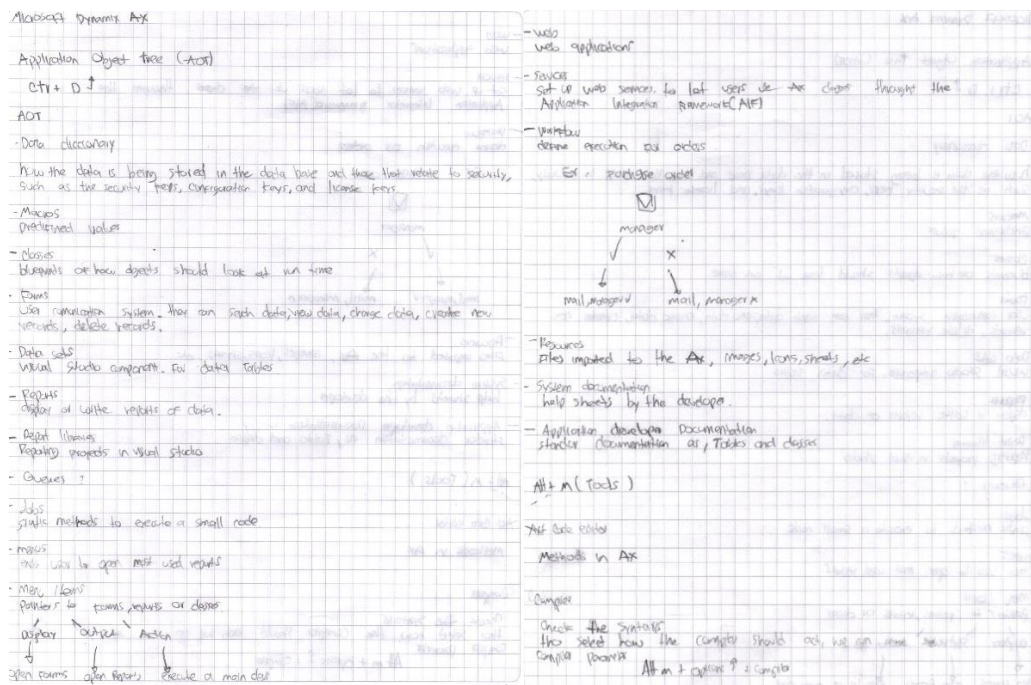 Microsoft Dynamix Ax
Application Object tree (AOT)
Ctr + D ↑
AOT
- Data diccionary
how the data is being stored in the data base and those that relate to security,
such as the security keys, configuration keys, and license keys.
- Macros
predefined values
- classes
blueprints of how objects should look at run time
- Forms
User comunication system. they can seach data, view data, change data, create new
records, delete records.
- Data sets
visual studio component. For data Tables
- Reports
display or write reports of data.
- Report libraries
Reporting projects in visual studio
- Queues ?
- Jobs
static methods to execute a small code
- menus
user to open most used reports
- Menu Items
pointers to forms, reports or classes
Display Output Action
open Forms open Reports execute a main class
- web
web applications
- Sevices
Set up web services, to let users use Ax thought the
Application Integration framework (AIF)
- Workflow
define execution for orders
Ex. purchase order
manager
✓ x
mail, manager ✓ mail, manager x
- Resources
Files imported to the Ax, images, Icons, sheets, etc
- System documentation
help sheets by the developer.
- Application developer Documentation
standar documentation as, Tables and classes
Alt + m (Tools)
Code editor
Methods in Ax
Compiler
Check the syntaxis
select how the compiler should act, we can
compiler
Alt m + options ↑ + Compiler